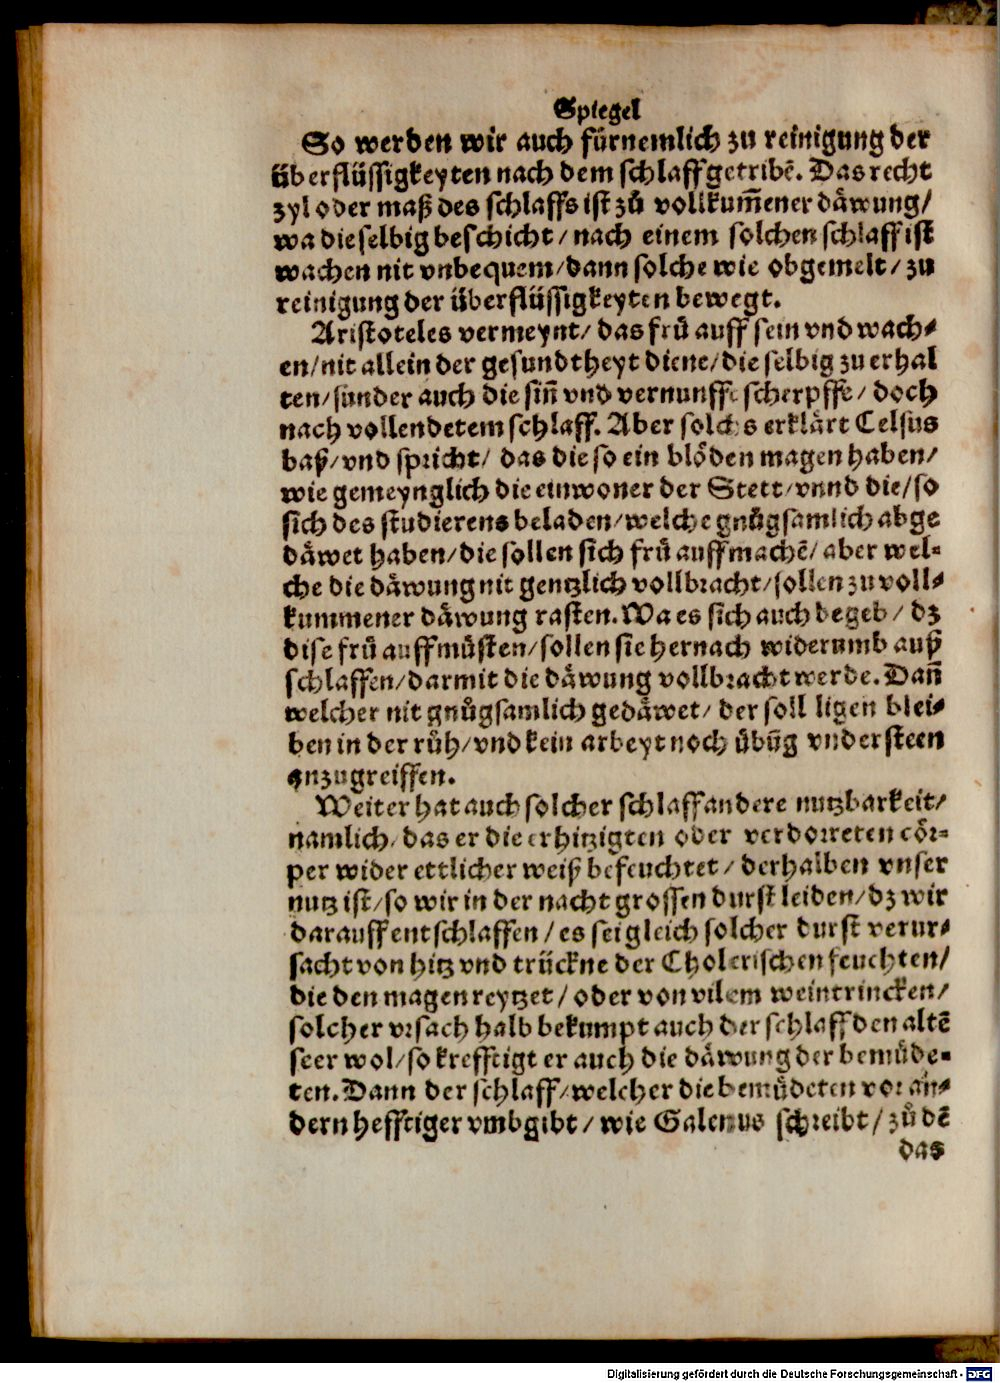 Spiegel
So werden wir auch fürnemlich zu reinigung der
überflüssigkeyten nach dem schlaff getribē. Das recht
zyl oder maß des schlaffs ist zů vollkum̄ener däwung/
wa die selbig beschicht/ nach einem solchen schlaff ist
wachen nit vnbequem/ dann solche wie obgemelt/ zu
reinigung der überflüssigkeyten bewegt.
Aristoteles vermeynt/ das frů auff sein vnd wach⸗
en/ nit allein der gesundtheyt diene/ die selbig zu erhal
ten/ sunder auch die sin̄ vnd vernunfft scherpffe/ doch
nach vollendetem schlaff. Aber solchs erklärt Celsus
baß/ vnd spricht/ das die so ein blöden magen haben/
wie gemeynglich die einwoner der Stett/ vnnd die/ so
sich des studierens beladen/ welche gnůgsamlich abge
däwet haben/ die sollen sich frů auffmachē/ aber wel⸗
che die däwung nit gentzlich vollbracht/ sollen zu voll⸗
kummener däwung rasten. Wa es sich auch begeb/ dz
dise frů auffmůsten/ sollen sie hernach widerumb auß
schlaffen/ darmit die däwung vollbracht werde. Dañ
welcher nit gnůgsamlich gedäwet/ der soll ligen blei⸗
ben in der růh/ vnd kein arbeyt noch übūg vndersteen
anzugreiffen.
Weiter hat auch solcher schlaff andere nutzbarkeit/
namlich/ das er die erhitzigten oder verdorreten cör⸗
per wider ettlicher weiß befeuchtet/ derhalben vnser
nutz ist/ so wir in der nacht grossen durst leiden/ dz wir
darauff entschlaffen/ es sei gleich solcher durst verur⸗
sacht von hitz vnd trückne der Cholerischen feuchten/
die den magen reytzet/ oder von vilem weintrincken/
solcher vrsach halb bekumpt auch der schlaff den altē
seer wol/ so krefftigt er auch die däwung der bemůde⸗
ten. Dann der schlaff/ welcher die bemůdeten vor an⸗
dern hefftiger vmbgibt/ wie Galenus schreibt/ zů dē
das
Digitalisierung gefördert durch die Deutsche Forschungsgemeinschaft - DFG